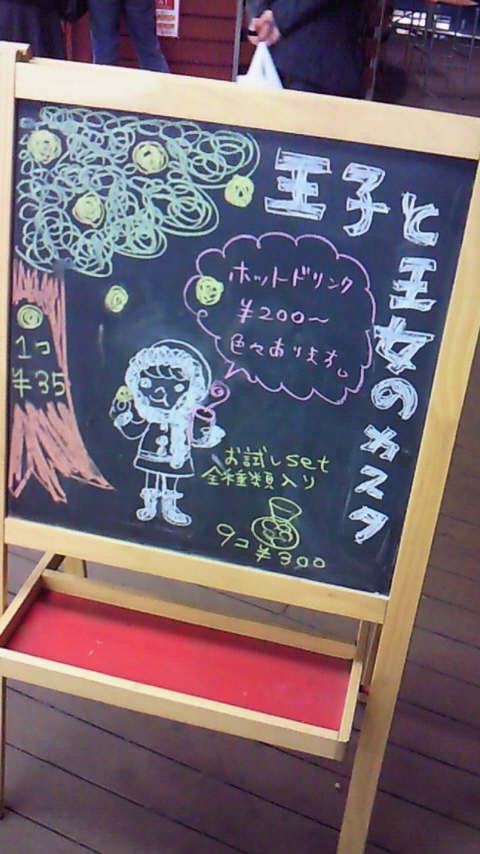 王子と王女のカスタ
ホットドリンク
¥200～
色々あります。
1コ
¥35
お試しset
全種類入り
9コ ¥300